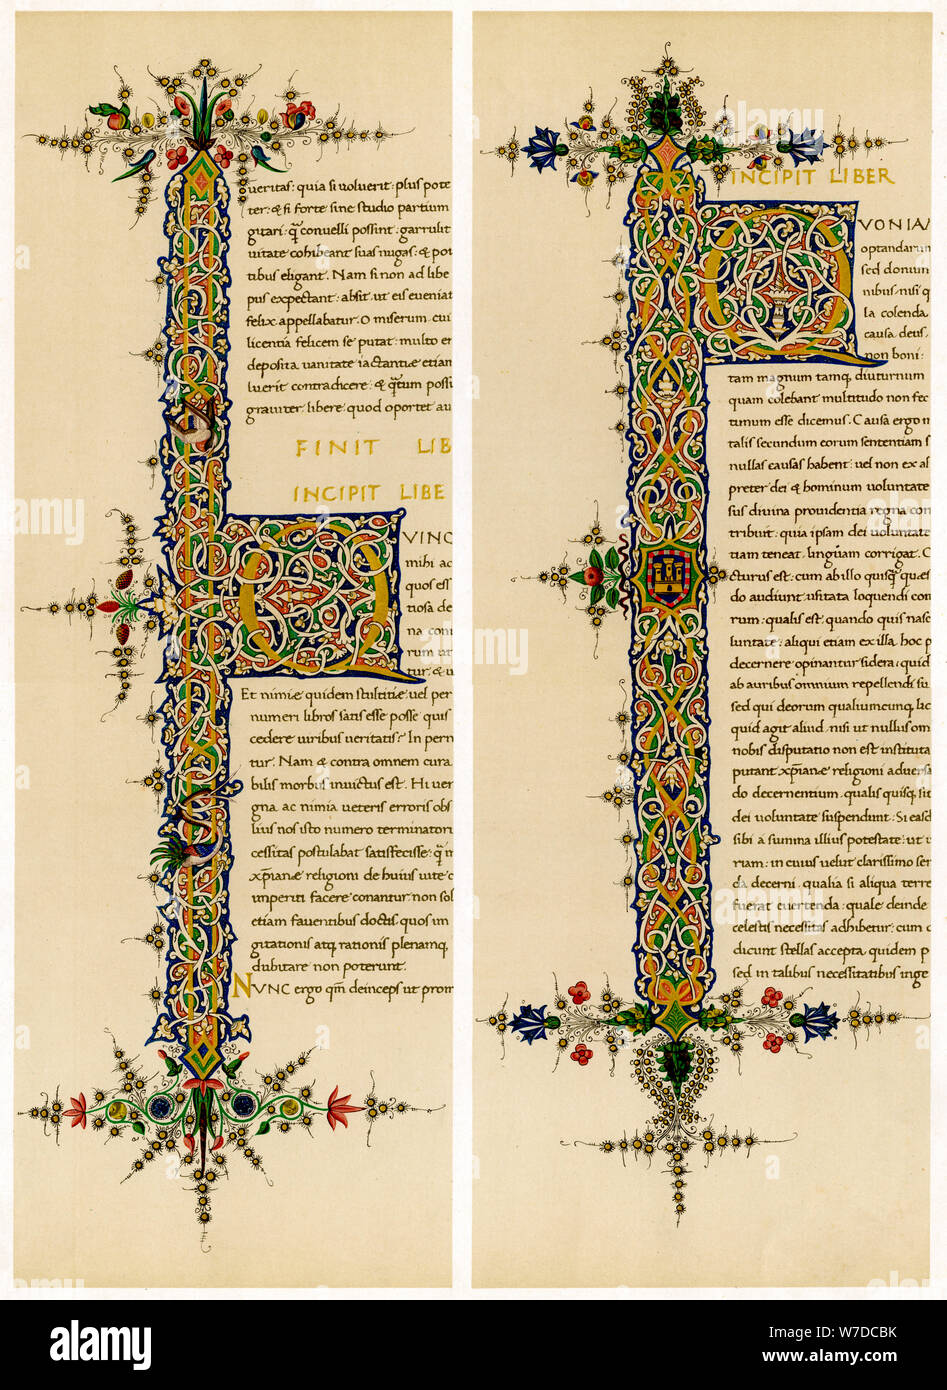 ueritas: quia si voluerit: plus pote
ter: & si forte sine studio partium
gitari: q̄ conuelli possint: garrulit
uitate cohibeant suas nugas: & pot
tibus eligant. Nam si non ad libe
pus expectant: absit ut eis eueniat
felix appellabatur. O miserum cui
licentia felicem se putat: multo er
deposita uanitate iactantiæ etian
luerit contradicere: & q̄tum possu
grauiter libere quod oportet au
FINIT LIB
INCIPIT LIBE
VINC
mihi ac
quos ess
tiosa de
na coni
rum ut
tur: & u
Et nimiæ quidem stultitiæ uel per
numeri libros satis esse posse quis
cedere uiribus ueritatis? In pern
tur. Nam & contra omnem cura
bilis morbus inuictus est. Hi uer
gna ac nimia ueteris erroris obs
lius nos isto numero terminatori
cessitas postulabat satisfecisse: q̄ n
xp̄ianæ religioni de huius uitæ c
imperiti facere conantur. non sol
etiam fauentibus doctis quos in
gitationis atq; rationis plenamq,
dubitare non poterunt.
NVNC ergo qm̄ deinceps ut prom
INCIPIT LIBER
VONIAM
optandarum
sed donum
nibus nisi q
la colenda
causa deus.
non boni:
tam magnum tamq, diuturnum
quam colebant multitudo non fec
timum esse dicemus. Causa ergo m
talis secundum eorum sententiam s
nullas causas habent: uel non ex al
preter dei & hominum uoluntate
sus diuina prouidentia regna con
tribuit: quia ipsam dei uoluntate
tiam teneat. linguam corrigat. C
cturus est: cum ab illo quisq; quæs
do audiunt: usitata loquendi con
rum: qualis est: quando quis nasc
luntate: aliqui etiam ex illa: hoc p
decernere opinantur sidera: quid
ab auribus omnium repellendi su
sed qui deorum qualiumcunq, lic
quid agit aliud. nisi ut nullus om
nobis disputatio non est instituta
putant xp̄ianæ religioni aduersa
do decernentium. qualis quisq; sit
dei uoluntate suspendunt: Si easd
sibi a summa illius potestate: ut i
riam: in cuius uelut clarissimo sen
da decerni. qualia si aliqua terre
fuerat euertenda: quale deinde
celestis necessitas adhibetur: cum
dicunt stellas accepta quidem p
sed in talibus necessitatibus inge
alamy
Image ID: W7DCBK
www.alamy.com